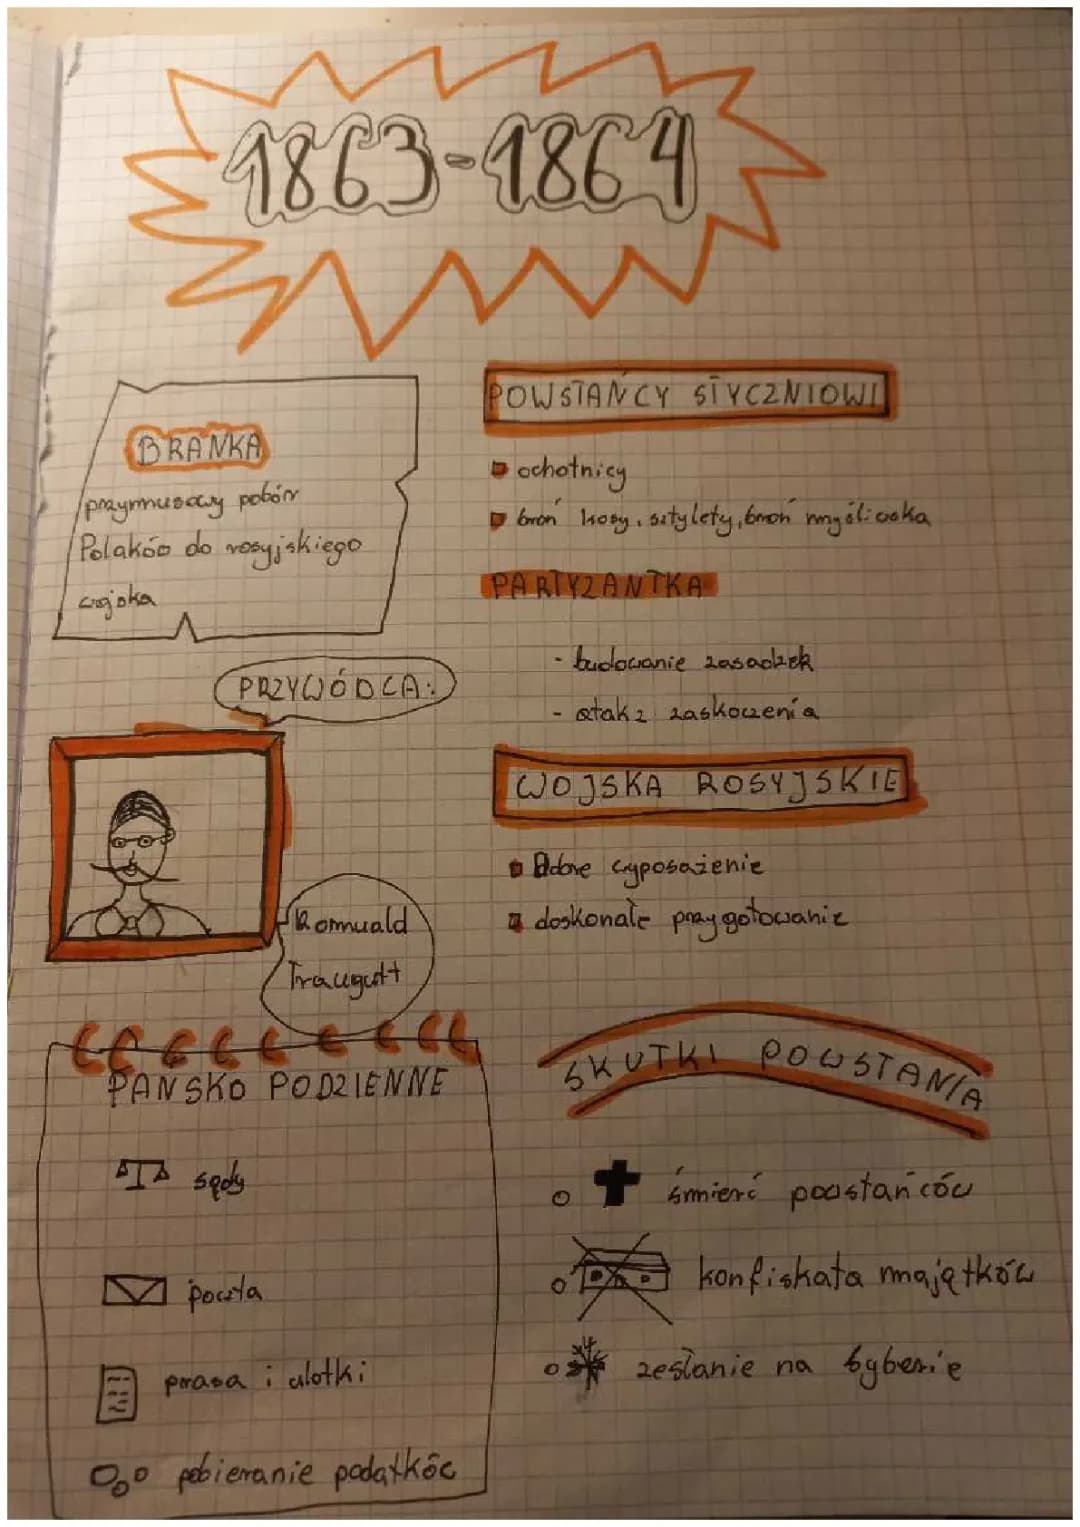 1863-1864
BRANKA
przymusowy pobór
Polaków do rosyjskiego
wojska
POWSTAŃCY STYCZNIOWI
ochotnicy
broń kosy, sztylety, broń myśliwska
PARTYZANTKA
- budowanie zasadzek
- atak z zaskoczenia
PRZYWÓDCA:
Romuald
Traugutt
WOJSKA ROSYJSKIE
Dobre wyposażenie
doskonałe przygotowanie
PANSKO PODZIENNE
sądy
poczta
prasa i ulotki
pobieranie podatków
SKUTKI POWSTANIA
śmierć powstańców
konfiskata majątków
zesłanie na Syberie